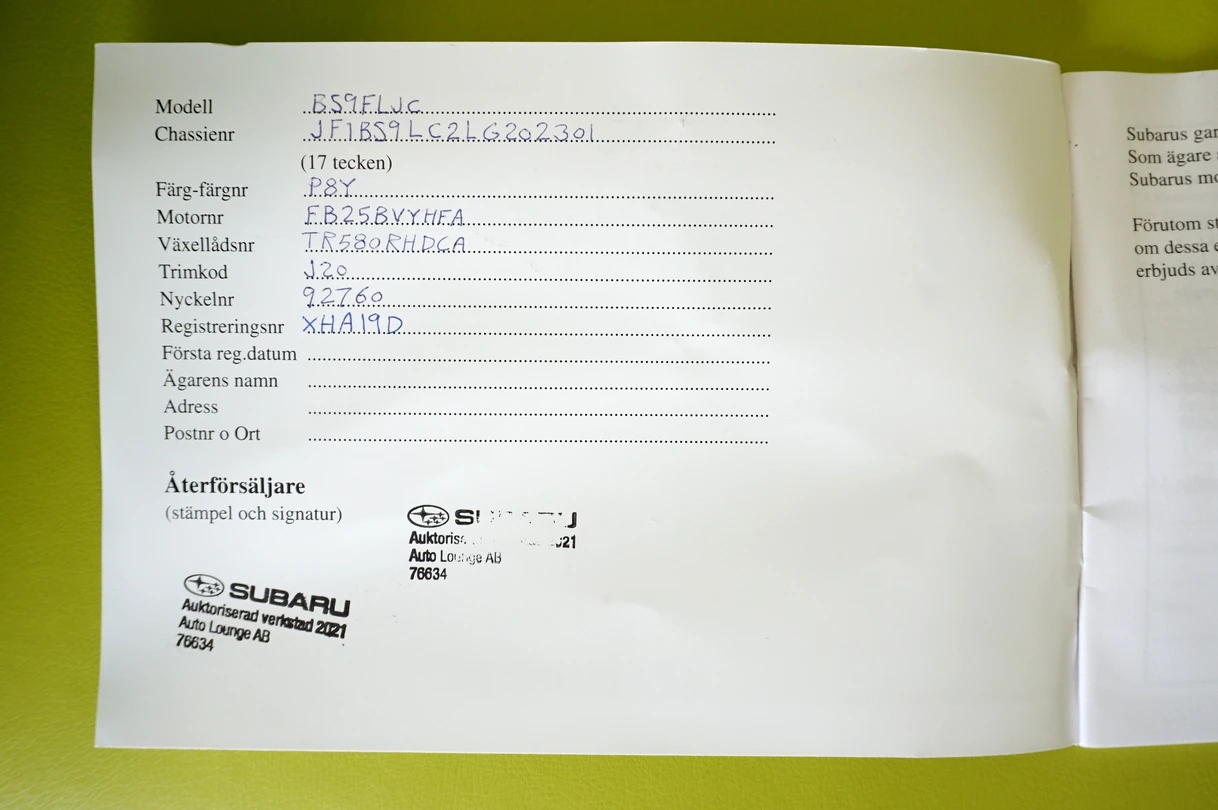 Modell BS9FLJC
Chassienr JF1BS9LC2LG202301
(17 tecken)
Färg-färgnr P8Y
Motornr FB25BVYHFA
Växellådsnr TR580RHDCA
Trimkod J20
Nyckelnr 92760
Registreringsnr XHA19D
Första reg.datum
Ägarens namn
Adress
Postnr o Ort
Återförsäljare
(stämpel och signatur)
Auto Lounge AB
76634
SUBARU
Auktoriserad verkstad 2021
Auto Lounge AB
76634
Subarus
Som ägare
Subarus
Förutom
om dessa
erbjuds av